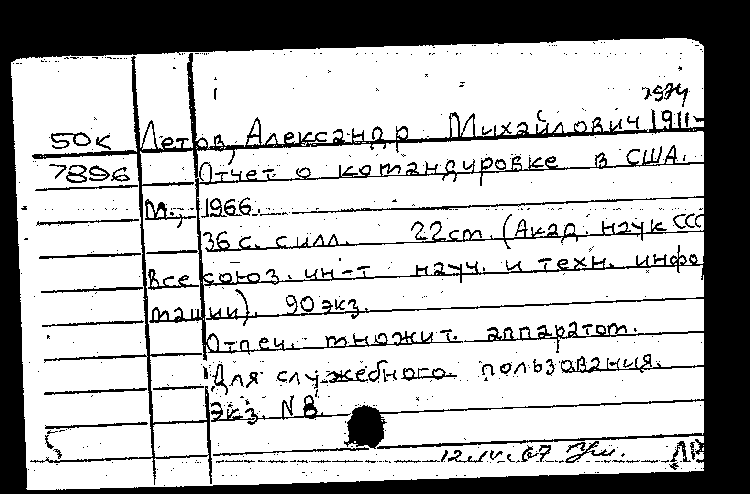 1974
50к Летов, Александр Михайлович 1911-
7896 Отчет о командировке в США.
М., 1966.
36 с. с илл. 22 см. (Акад. наук ССС
Всесоюз. ин-т науч. и техн. инфор
мации). 90 экз.
Отпеч. множит. аппаратом.
Для служебного пользования.
Экз. N 8.
12.IV.67 ЛВ